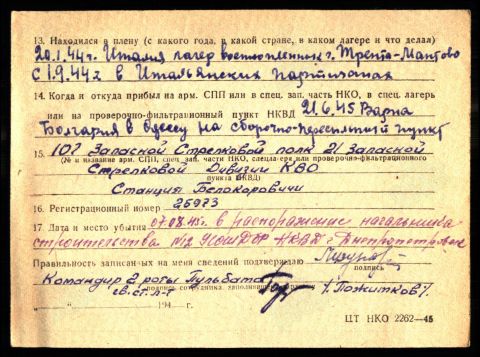 13. Находился в плену (с какого года, в какой стране, в каком лагере и что делал)
20.1.44г. Италия лагер военнопленных г. Тренто-Мантово
с 1.9.44 г. в Итальянских партизанах
14. Когда и откуда прибыл на арм. СПП или в спец. зап. часть НКО, в спец. лагерь
или на проверочно-фильтрационный пункт НКВД 21.6.45 Варна
Болгария в Одессу на сборочно-пересылный пункт
15. 107 Запасной Стрелковой полк 21 Запасной
(№ и название арм. СПП, спец. зап. части НКО, спецлагеря или проверочно-фильтрационного
Стрелковой Дивизии КВО
пункта НКВД)
Станция Белокоровичи
16. Регистрационный номер 25973
17. Дата и место убытия 07.08.45г. в распоряжение начальника
строительства №12 НКВД г. Днепропетровск
Правильность записанных на меня сведений подтверждаю
подпись
Командир 2 роты Пульбата
гв. ст. л-т подпись сотрудника, / Пожитков /
"" 194 г.
ЦТ НКО 2262—45